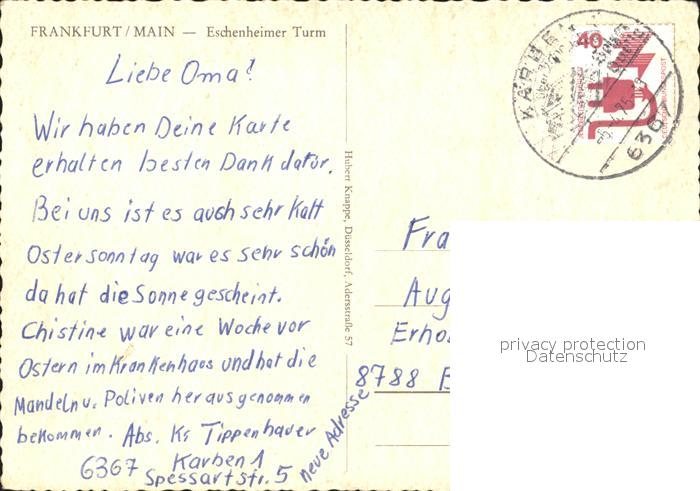 FRANKFURT / MAIN — Eschenheimer Turm
Liebe Oma!
Wir haben Deine Karte
erhalten besten Dank dafür.
Bei uns ist es auch sehr kalt
Ostersonntag war es sehr schön
da hat die Sonne gescheint.
Chistine war eine Woche vor
Ostern im Krankenhaus und hat die
Mandeln u. Poliven herausgenommen
bekommen. Abs. Ks Tippenhauer
6367 Karben 1
Spessartstr. 5
neue Adresse
Hubert Knappe, Düsseldorf, Adersstraße 57
KARBEN
636
40
Fra
Aug
Erho
8788 B
privacy protection
Datenschutz